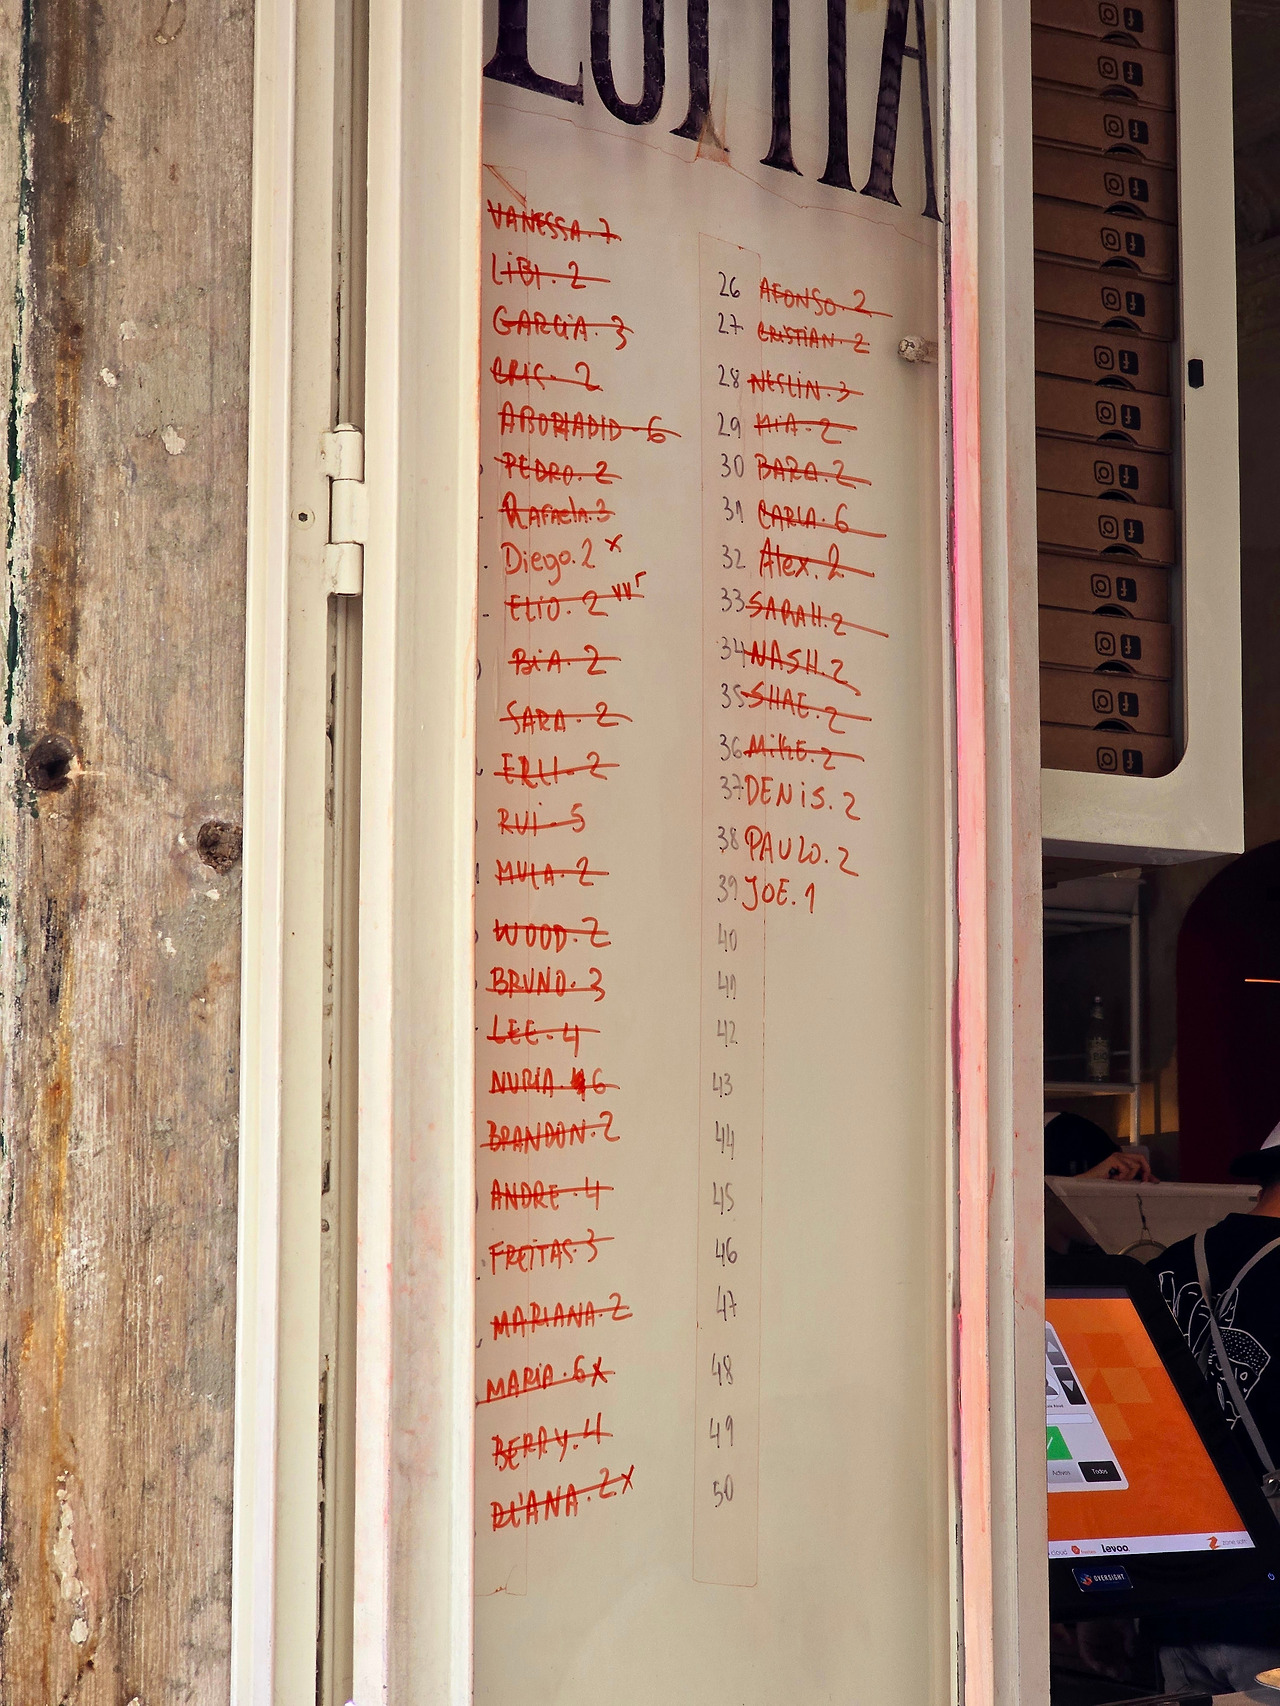 VANESSA. 7
LiBi. 2
GARCiA. 3
CRIS. 2
PEDRO. 2
Rafaela. 3
Diego. 2 x
ELiO. 2
BiA. 2
SARA. 2
RUi. 5
MULA. 2
WOOD. 2
BRUNO. 3
LEE. 4
NURiA. 6
BRANDON. 2
ANDRE. 4
FREiTAS. 3
MARiANA. 2
MARiA. 6 x
BERRY. 4
DiANA. 2 x
26 AFONSO. 2
27 CRiSTiAN. 2
28 NESLiN. 3
29 MiA. 2
30 BARA. 2
31 CARLA. 6
32 Alex. 2
33 SARAH. 2
34 NASH. 2
35 SHAE. 2
36 MiKE. 2
37 DENiS. 2
38 PAULO. 2
39 JOE. 1
40
41
42
43
44
45
46
47
48
49
50
Activos Todos
cloud levoo zone soft
OVERSIGHT